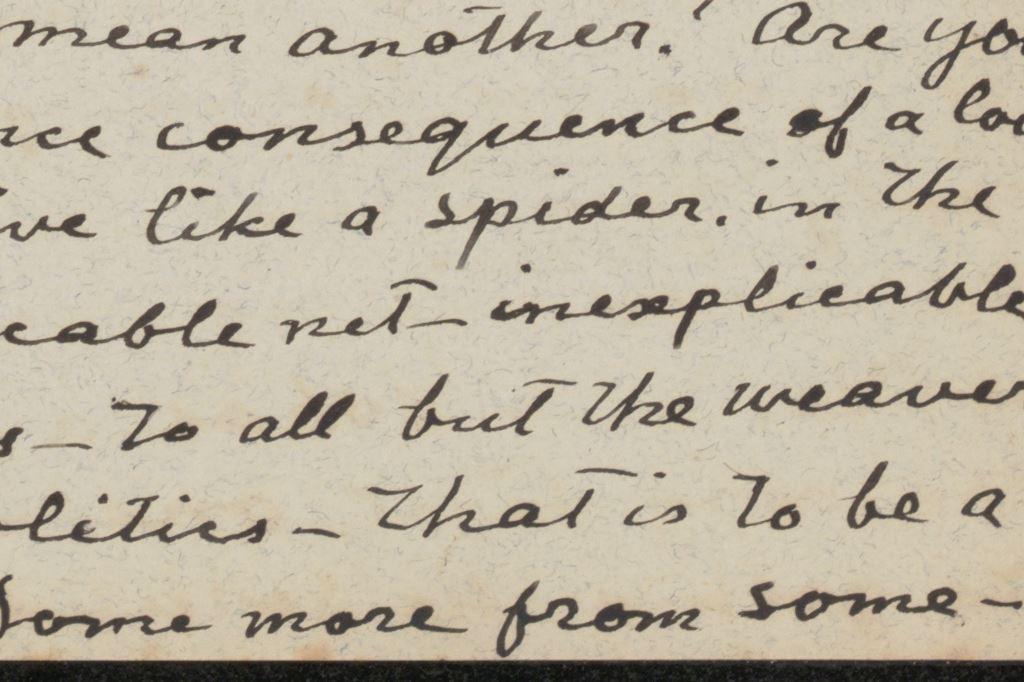 mean another.' Are you
nce consequence of a loo
ive like a spider, in the
cable net - inexplicable
s - to all but the weaver
litics - that is to be a
Some more from some-